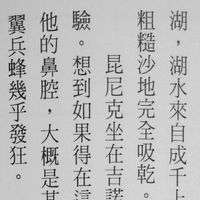 湖，湖水來自成千上
粗糙沙地完全吸乾。
昆尼克坐在吉諾
驗。想到如果得在這
他的鼻腔，大概是某
翼兵蜂幾乎發狂。